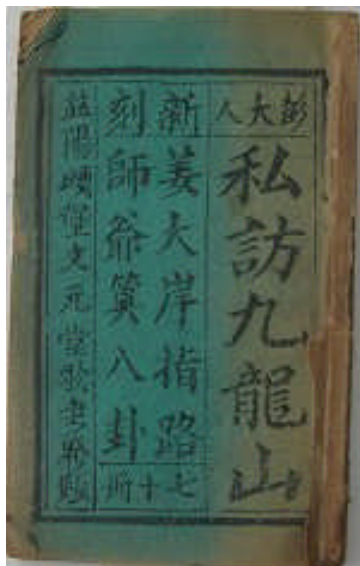 彭大人
私訪九龍山
新刻
姜大岸指路
師爺筭八卦
七十
益陽頭堡文元堂歌書發兌